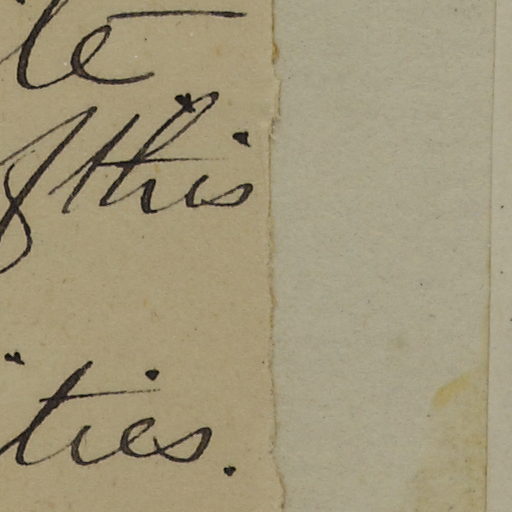 te
f this
ties.